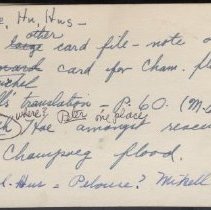 e, Hu, Hus-
other
large card file - note o
card for Cham. fl
's translation - P. 60. (M.S
where? Peter one place
Hoe amongst rescue
Champoeg flood.
Hus = Pelouse? Mitchell